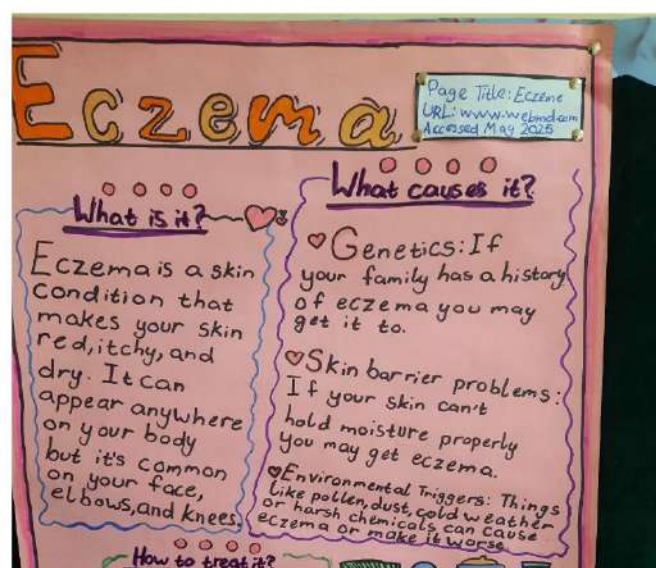 Eczema
Page Title: Eczeme
URL: www.webmd.com
Accessed May 2025
What is it?
Eczema is a skin
condition that
makes your skin
red, itchy, and
dry. It can
appear anywhere
on your body
but it's common
on your face,
elbows, and knees.
What causes it?
Genetics: If
your family has a history
of eczema you may
get it to.
Skin barrier problems:
If your skin can't
hold moisture properly
you may get eczema.
Environmental Triggers: Things
like pollen, dust, cold weather
or harsh chemicals can cause
eczema or make it worse.
How to treat it?